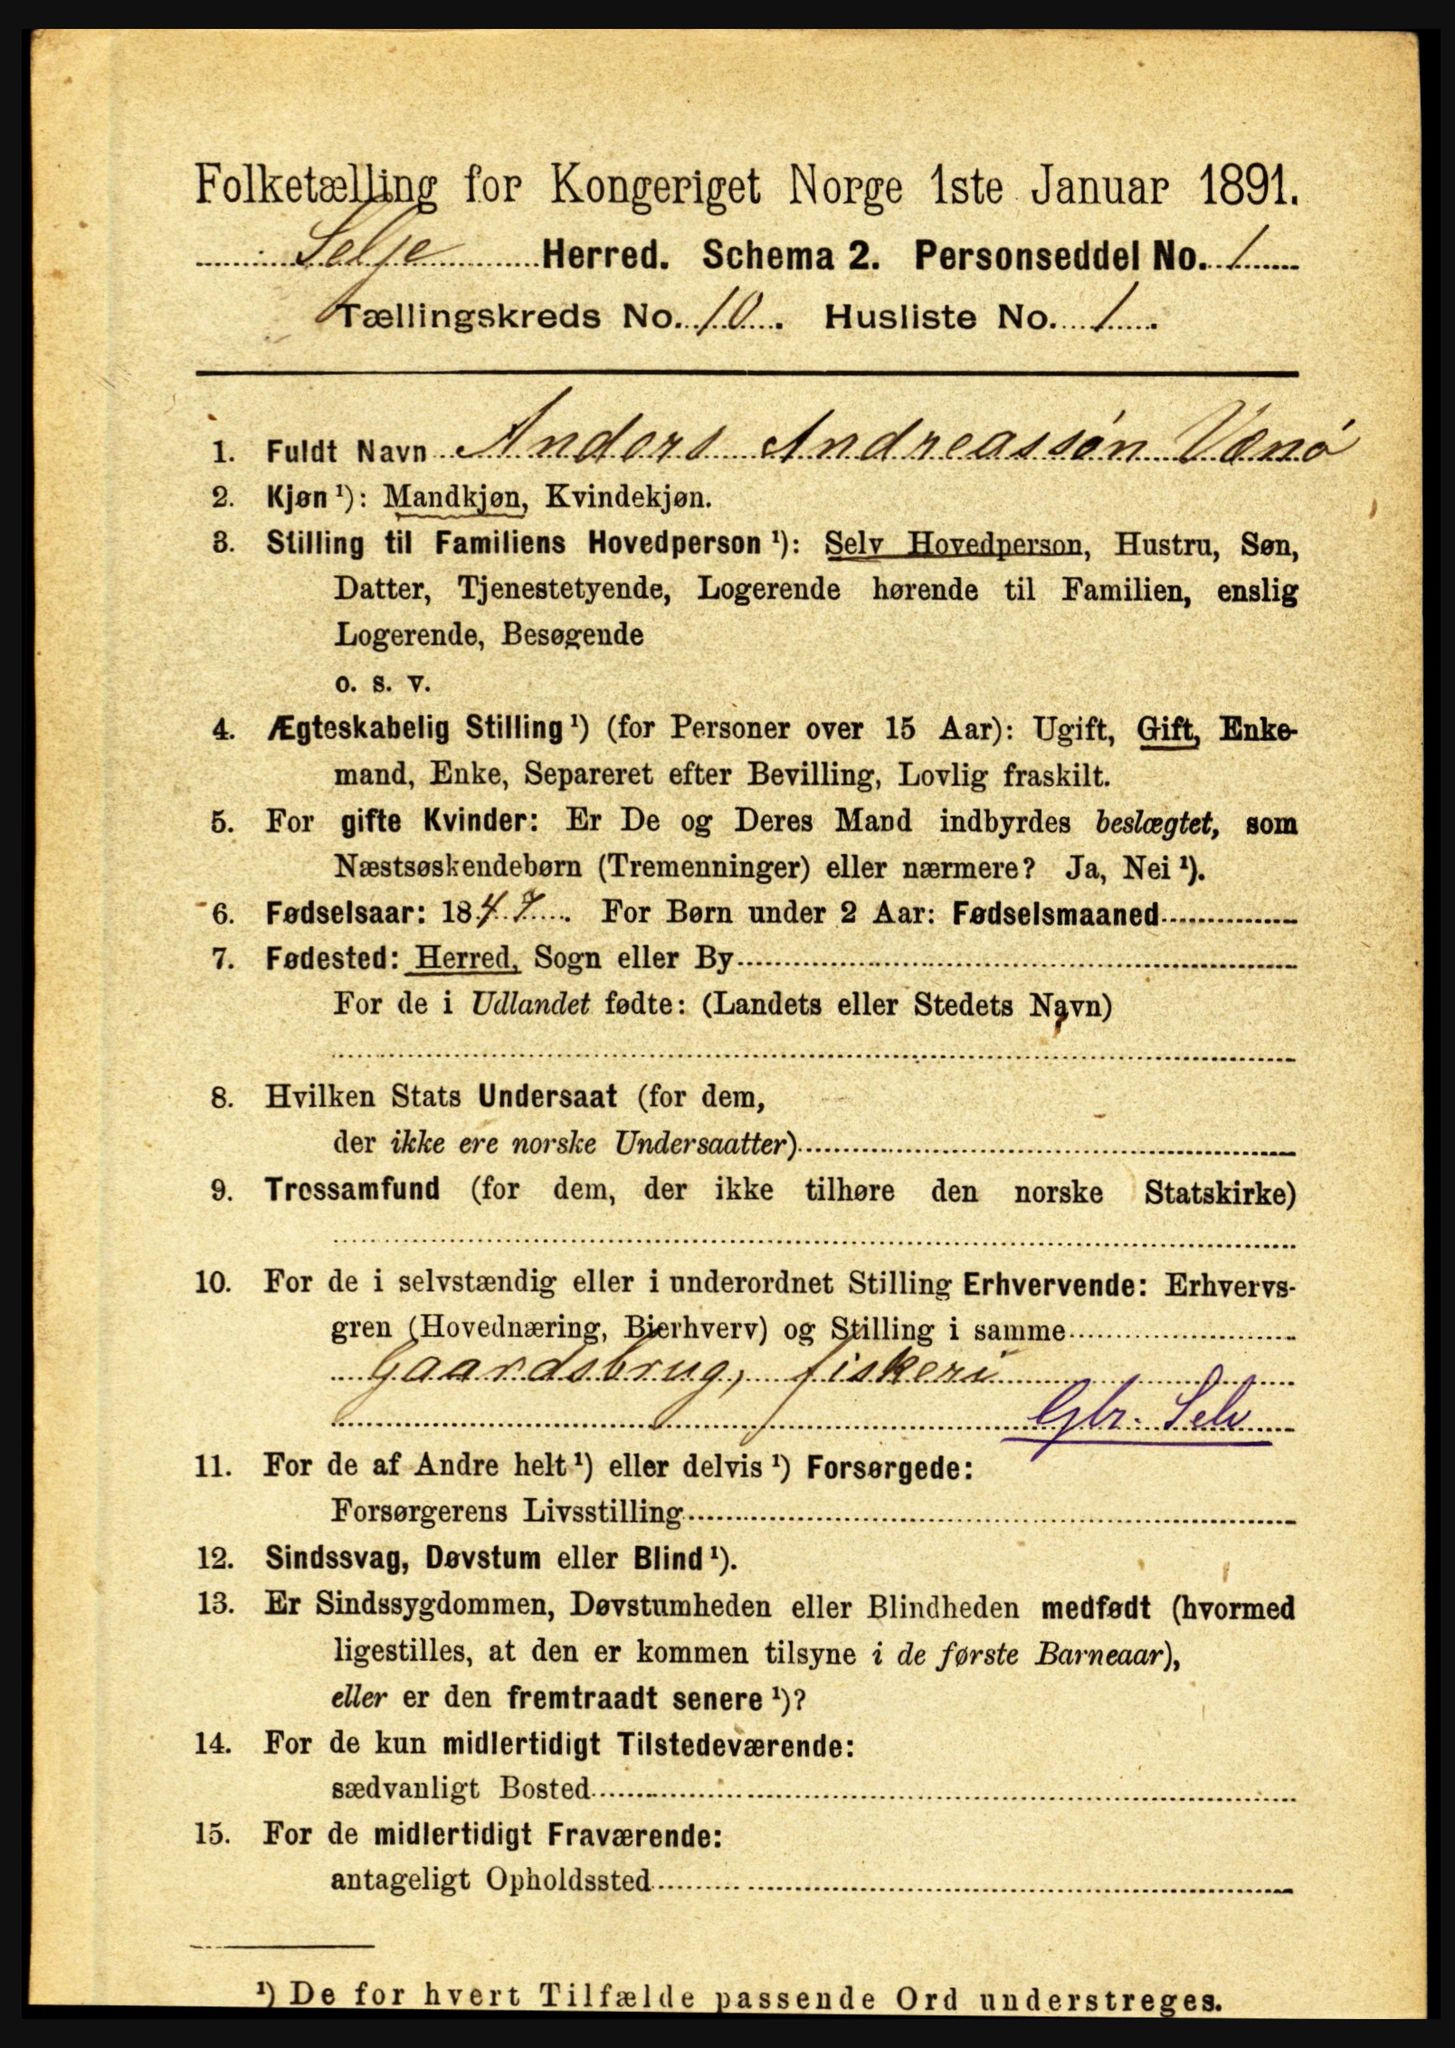 Folketælling for Kongeriget Norge 1ste Januar 1891.
Selje Herred. Schema 2. Personseddel No. 1
Tællingskreds No. 10. Husliste No. 1.
1. Fuldt Navn Anders Andreassøn Vænø
2. Kjøn¹): Mandkjøn, Kvindekjøn.
3. Stilling til Familiens Hovedperson¹): Selv Hovedperson, Hustru, Søn,
Datter, Tjenestetyende, Logerende hørende til Familien, enslig
Logerende, Besøgende
o. s. v.
4. Ægteskabelig Stilling¹) (for Personer over 15 Aar): Ugift, Gift, Enke-
mand, Enke, Separeret efter Bevilling, Lovlig fraskilt.
5. For gifte Kvinder: Er De og Deres Mand indbyrdes beslægtet, som
Næstsøskendebørn (Tremenninger) eller nærmere? Ja, Nei¹).
6. Fødselsaar: 1847. For Børn under 2 Aar: Fødselsmaaned
7. Fødested: Herred, Sogn eller By
For de i Udlandet fødte: (Landets eller Stedets Navn)
8. Hvilken Stats Undersaat (for dem,
der ikke ere norske Undersaatter)
9. Trossamfund (for dem, der ikke tilhøre den norske Statskirke)
10. For de i selvstændig eller i underordnet Stilling Erhvervende: Erhvervs-
gren (Hovednæring, Bierhverv) og Stilling i samme
Gaardsbrug, fiskeri
Gbr. Selv
11. For de af Andre helt¹) eller delvis¹) Forsørgede:
Forsørgerens Livsstilling
12. Sindssvag, Døvstum eller Blind¹).
13. Er Sindssygdommen, Døvstumheden eller Blindheden medfødt (hvormed
ligestilles, at den er kommen tilsyne i de første Barneaar),
eller er den fremtraadt senere¹)?
14. For de kun midlertidigt Tilstedeværende:
sædvanligt Bosted
15. For de midlertidigt Fraværende:
antageligt Opholdssted
¹) De for hvert Tilfælde passende Ord understreges.